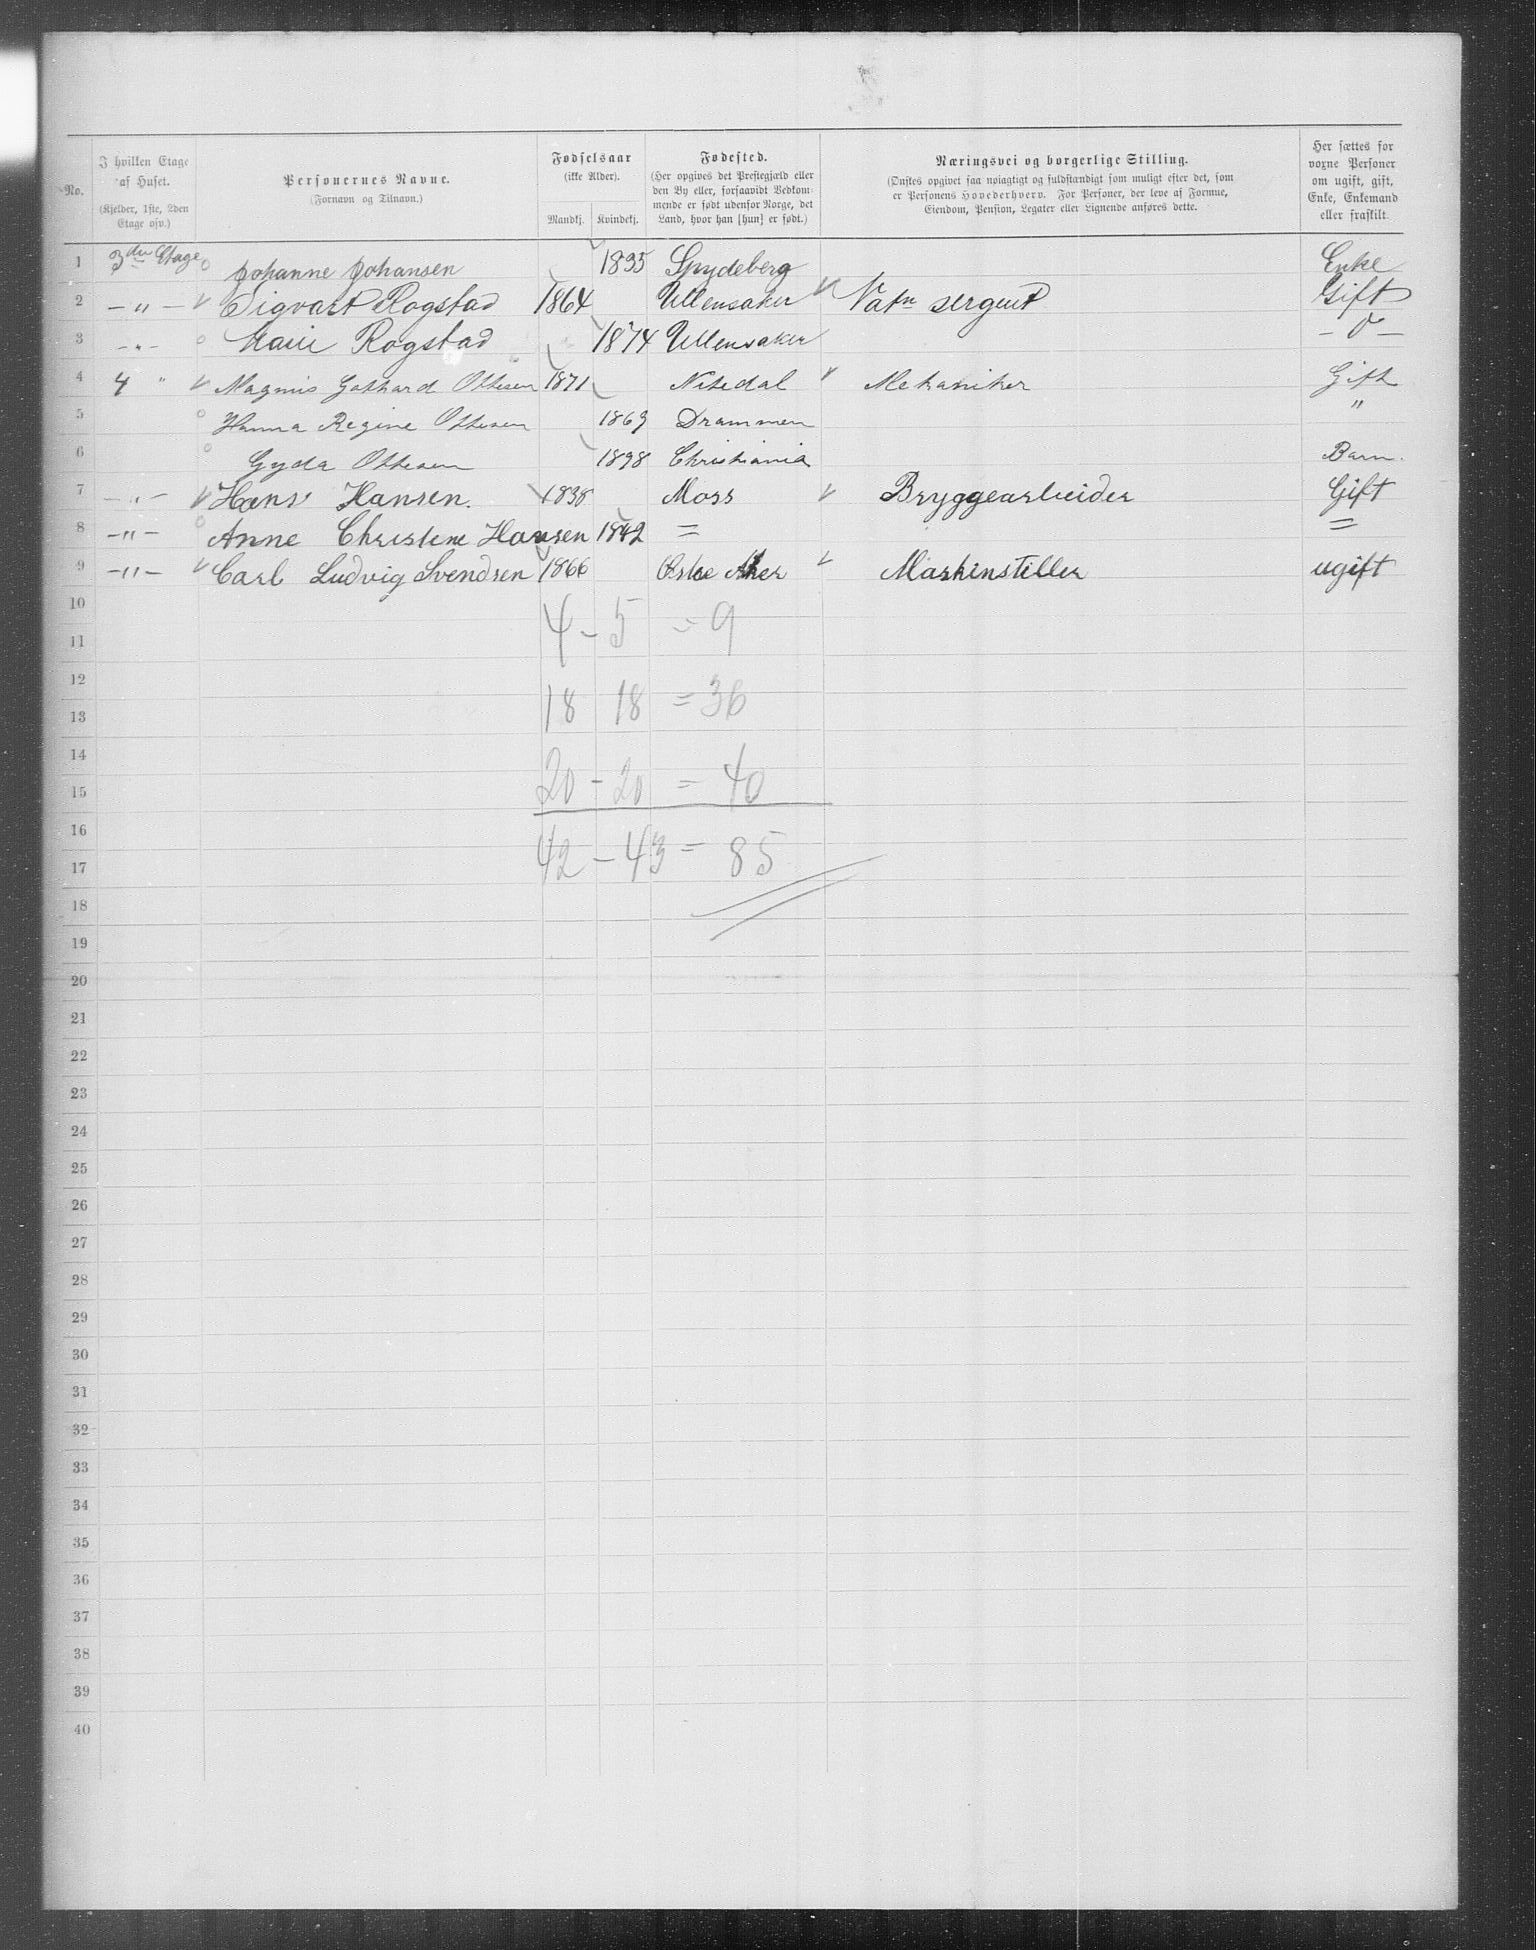 No.
I hvilken Etage af Huset.
(Kjelder, 1ste, 2den Etage osv.)
Personernes Navne.
(Fornavn og Tilnavn.)
Fødselsaar
(ikke Alder).
Mandkj.
Kvindekj.
Fødested.
(Her opgives det Prestegjæld eller
den By eller, forsaavidt Vedkom-
mende er født udenfor Norge, det
Land, hvor han [hun] er født.)
Næringsvei og borgerlige Stilling.
(Ønskes opgivet saa nøiagtigt og fuldstændigt som muligt efter det, som
er Personens Hovederhverv. For Personer, der leve af Formue,
Eiendom, Pension, Legater eller Lignende anføres dette.
Her sættes for
voxne Personer
om ugift, gift,
Enke, Enkemand
eller fraskilt.
1 3die Etage Johanne Johansen 1835 Spydeberg Enke
2 – " – Sigvart Rogstad 1864 Ullensaker sergent Gift
3 – " – Marie Rogstad 1874 Ullensaker – 0 –
4 4 " Magnus Gothard Ottesen 1871 Nitedal Mekaniker Gift
5 Hanna Regine Ottesen 1869 Drammen "
6 Gyda Ottesen 1898 Christiania Barn.
7 – " – Hans Hansen. 1838 Moss Bryggearbeider Gift
8 – " – Anne Christine Hansen 1842 = =
9 – " – Carl Ludvig Svendsen 1866 Østre Aker Maskinstiller ugift
10
4 – 5 = 9
11
12
18 18 = 36
13
14
20 – 20 = 40
15
16
42 – 43 = 85
17
18
19
20
21
22
23
24
25
26
27
28
29
30
31
32
33
34
35
36
37
38
39
40